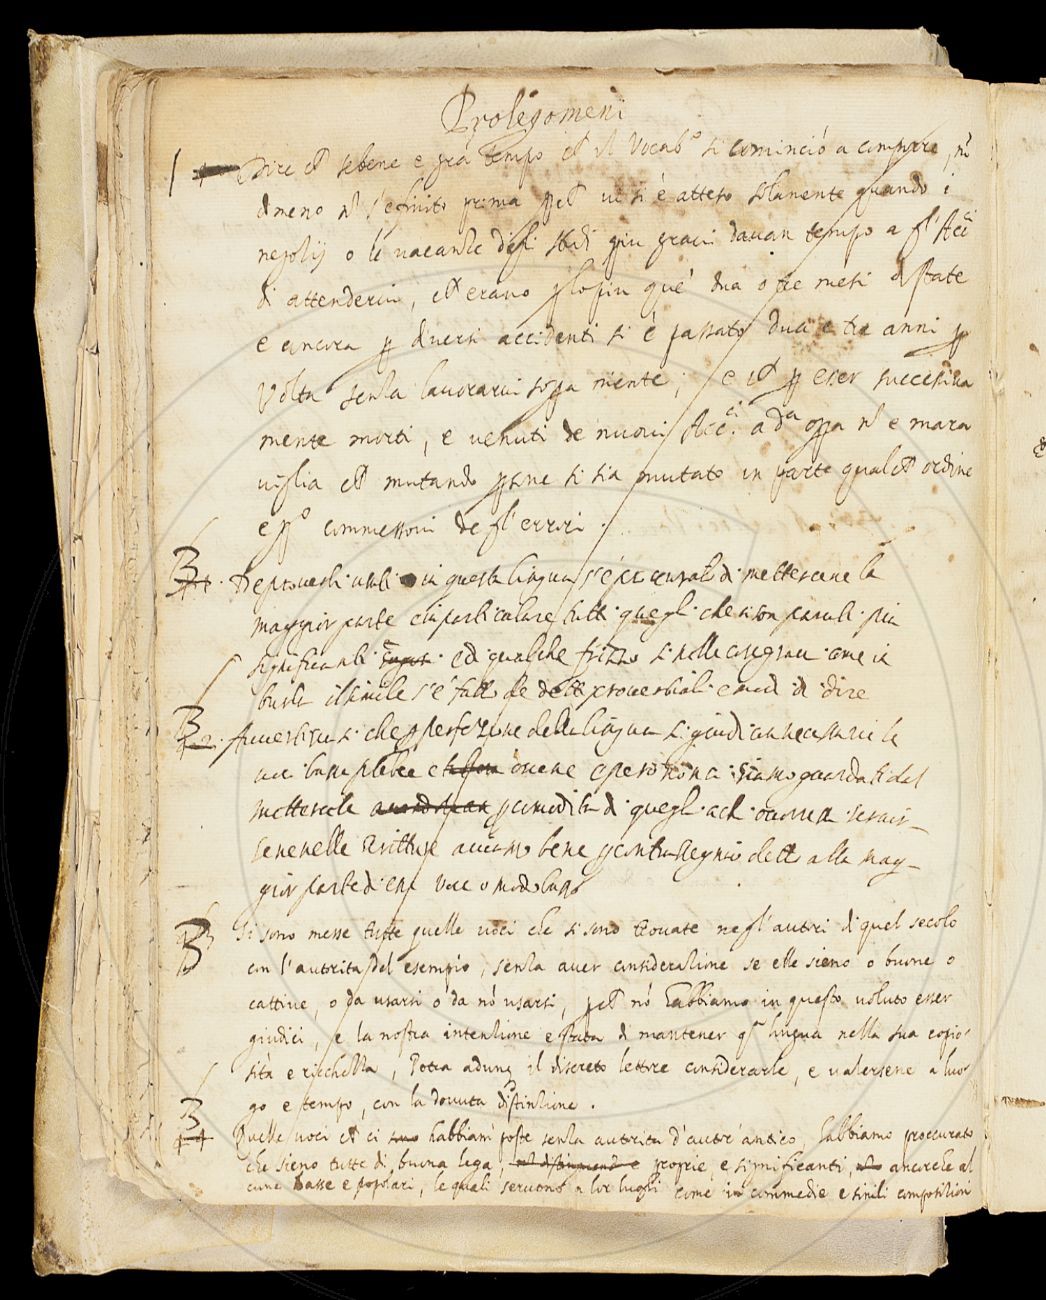 Prolegomeni
1 Dire che sebene è già tempo che il Vocab.º si cominciò a compilare, nō
dmeno nō s'è finito prima pche vi si è atteso solamente quando i
negotij o le vacanze degli studi più gravi davan tempo a gl'Acci
di attendervi, che erano plopiu que' dua o tre mesi di state
e ancora p diversi accidenti si è passato dua e tre anni p
volta senza lavorarvi sopra niente; e che p esser successiva
mente morti, e venuti de nuovi Acc.ci a d.a opa nō e mara
viglia che mutando psone si sia mutato in parte qualche ordine
e p.º commessovi degl'errori.
3 De proverbi usati in questa lingua s'è procurato di mettercene la
maggior parte e in particulare tutti quegli che ci son paruti più
significanti ed qualche frizzo si nelle cose gravi come in
burla il simile s'è fatto de detti proverbiali e modi di dire
3 Avvertitosi che p perfezione della lingua si giudican necessarie le
voci basse plebee e oscene e però non ci siamo guardati dal
mettercele p comodità di quegli a ch. occorressi servir
sene nelle scritture aviamo bene p contrassegnio detto alla mag-
gior parte di esse voce o modo basso
3 Si sono messe tutte quelle voci che si sono trovate negl'autori di quel secolo
con l'autorità del esempio, senza aver considerazione se elle sieno o buone o
cattive, o da usarsi o da nō usarsi, pche nō habbiamo in questo voluto esser
giudici, e la nostra intenzione è stata di mantener q.ª lingua nella sua copio-
sità e ricchezza, Potrà adunq il discreto lettore considerarle, e valersene a luo-
go e tempo, con la dovuta distinzione.
3 Quelle voci che ci habbiam poste senza autorità d'autore antico, habbiamo proccurato
che sieno tutte di buona lega, proprie, e significanti, ancorche al
cune basse e popolari, le quali servono a lor luoghi come in commedie e simili composizioni